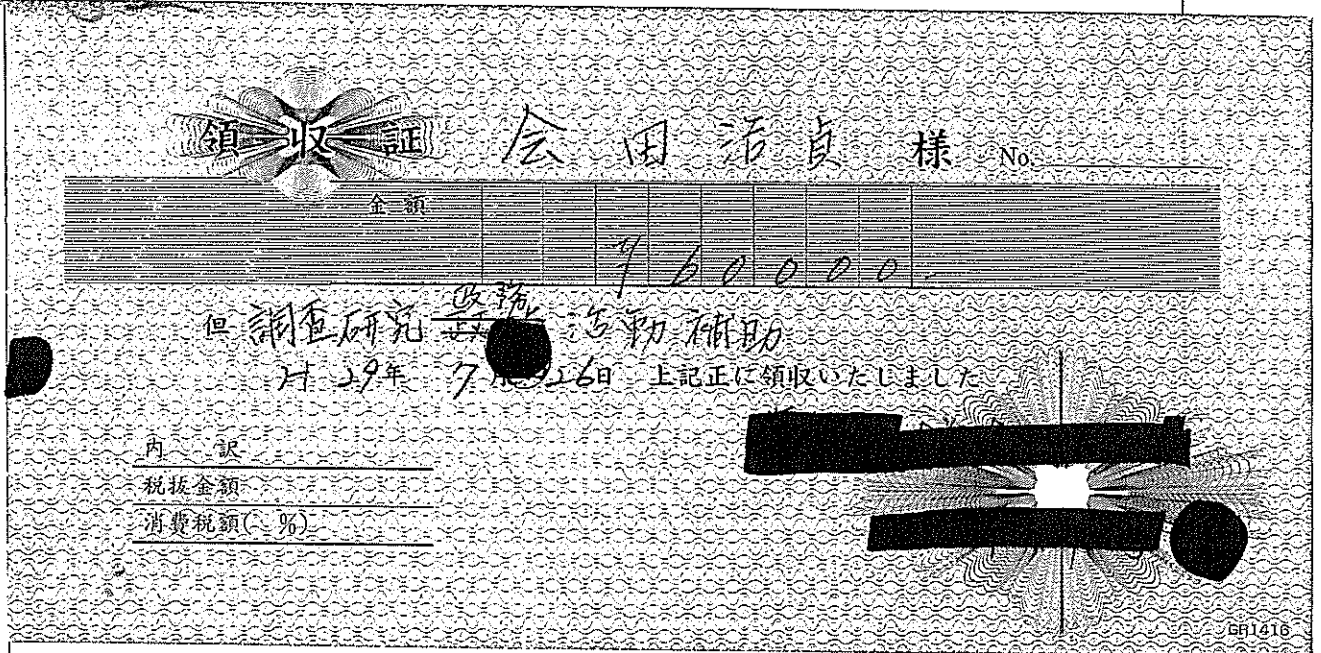 領収証 会田浩貞 様 No.
金額
¥60000.
政務
但 調査研究 活動補助
H29年7月26日 上記正に領収いたしました
内 訳
税抜金額
消費税額( %)
GR1416